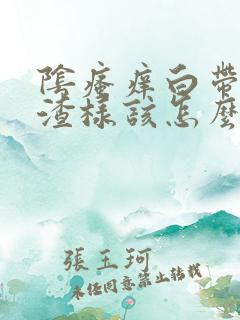 陰瘙痒白帶
渣樣該怎麼
張玉珂
未經同意禁止轉載